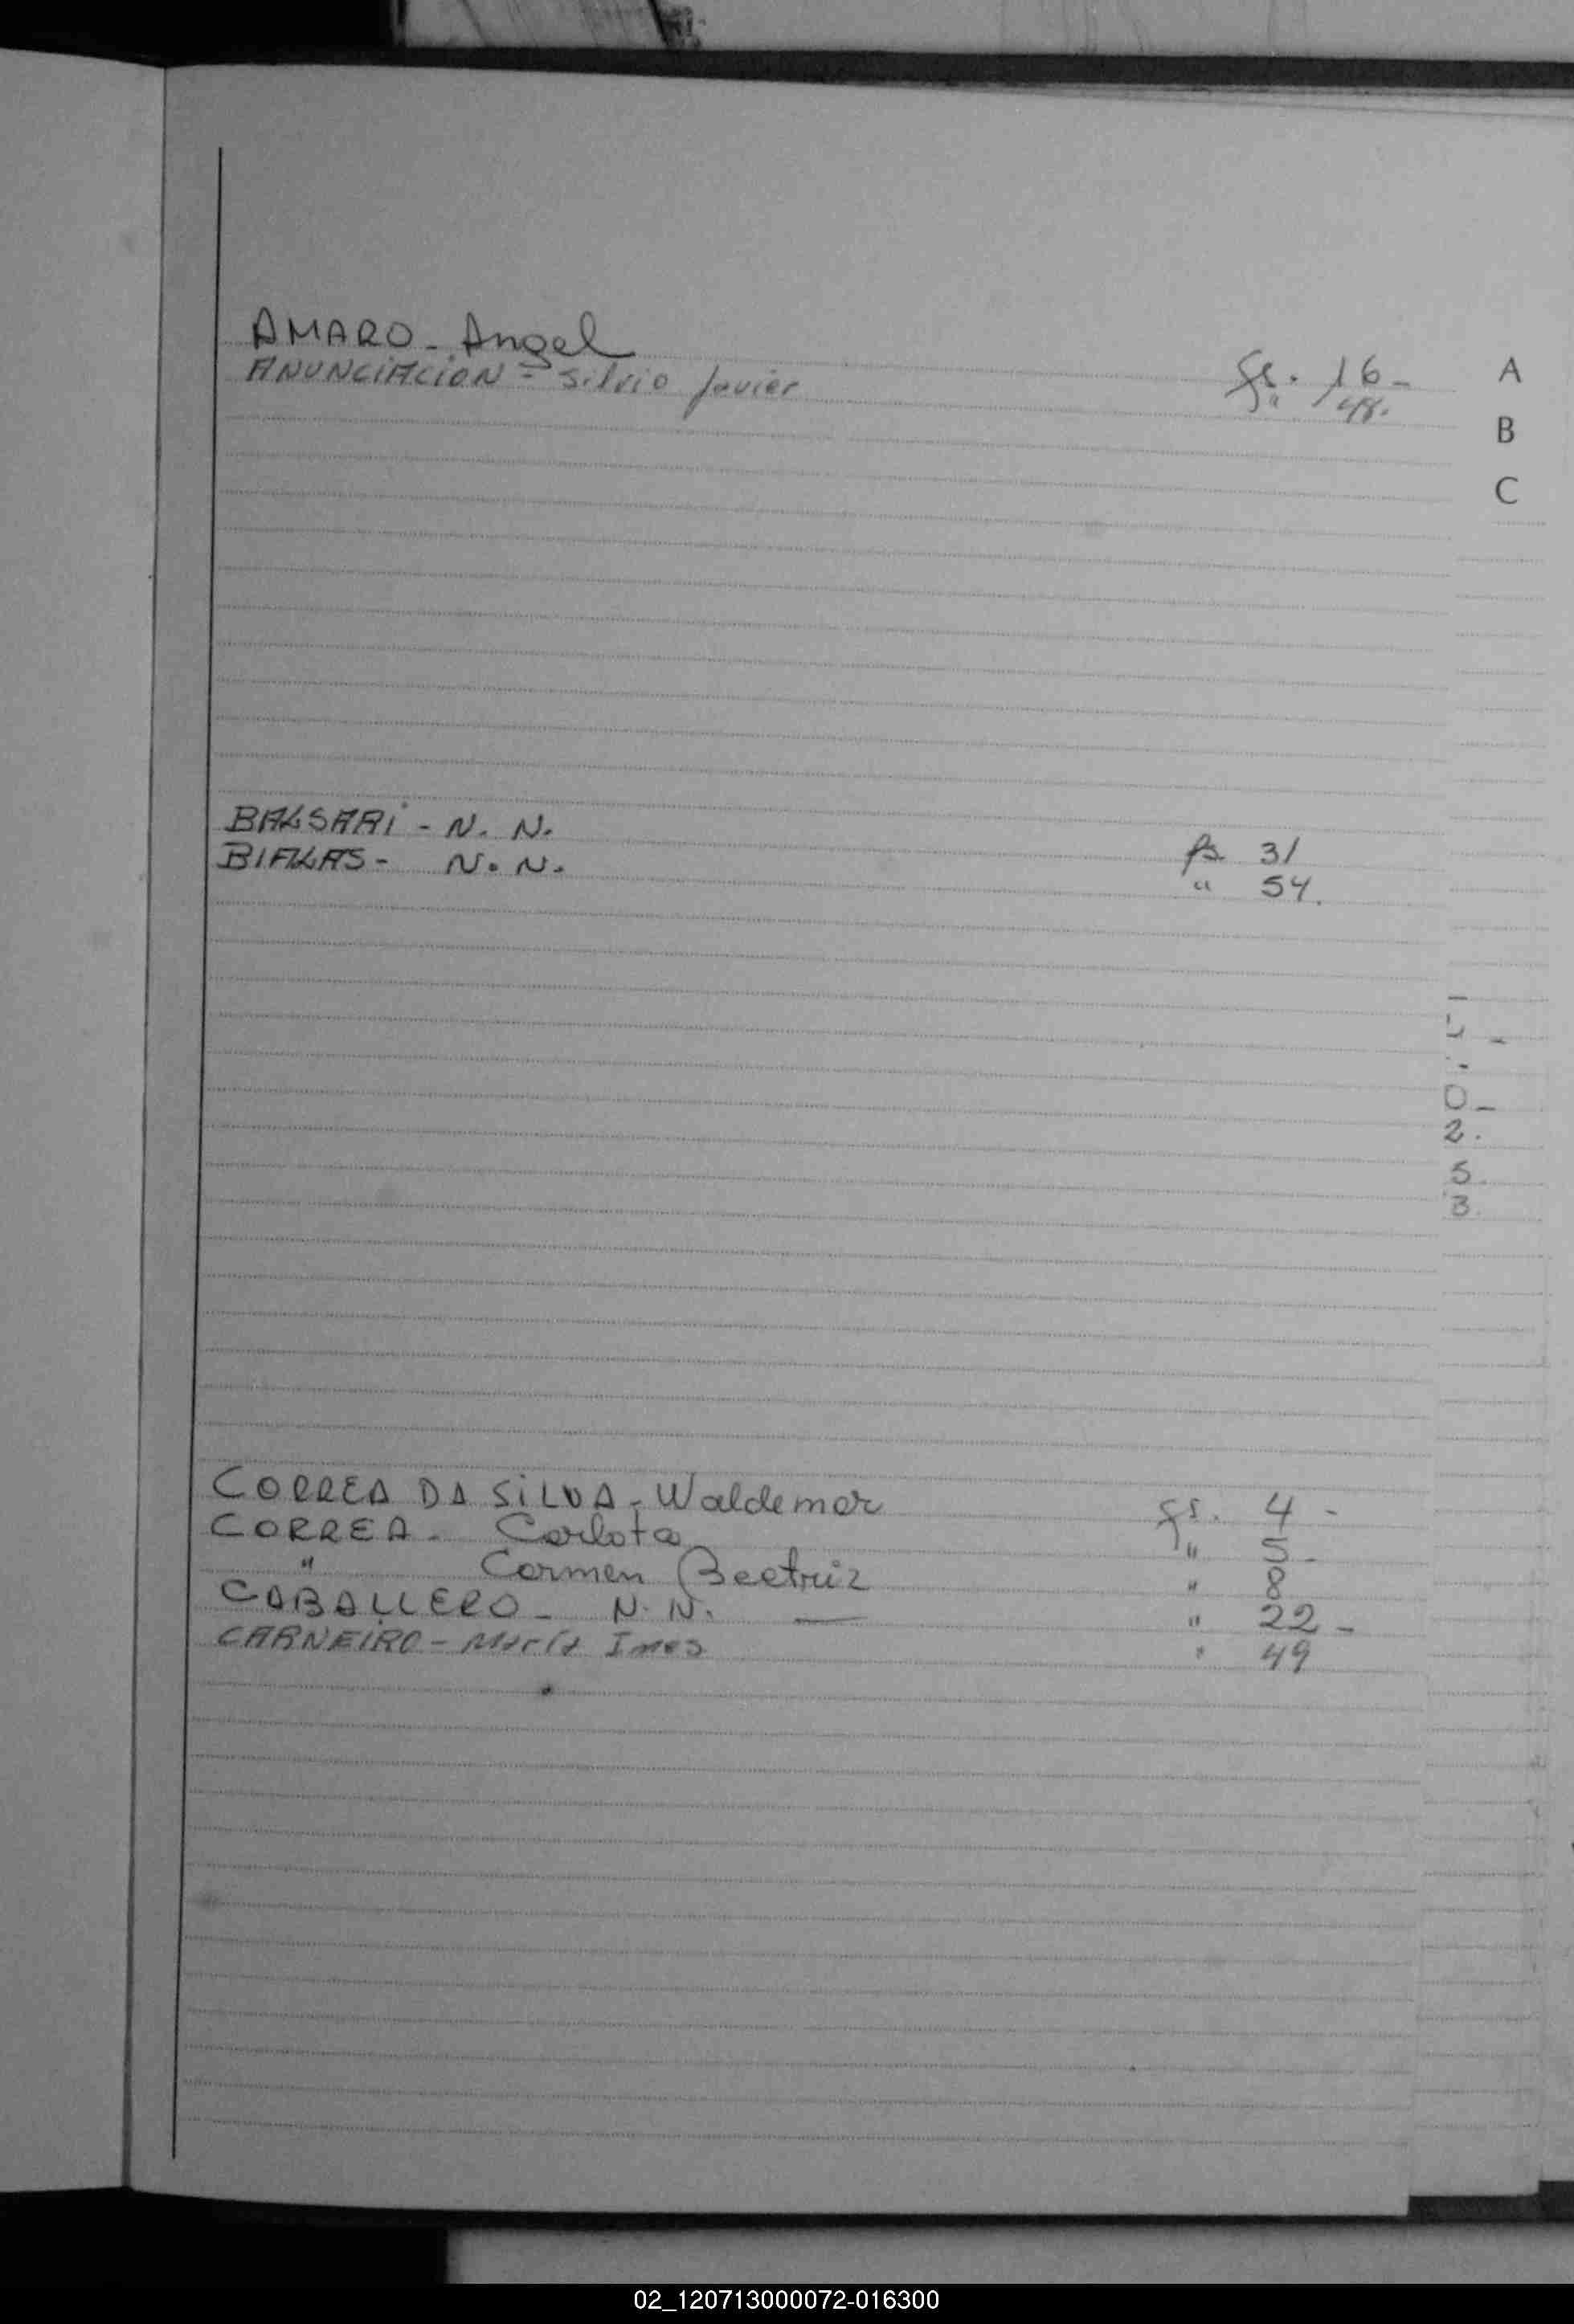 AMARO - Angel fs. 16 -
ANUNCIACION = Silvio Javier " 48.
A
B
C
BALSARI - N. N. fs. 31
BIALAS - N. N. " 54.
0 -
2.
5.
3
CORREA DA SILVA - Waldemar fs. 4 -
CORREA - Carlota " 5 -
" Carmen Beatriz " 8
CABALLERO - N. N. — " 22 -
CARNEIRO - María Ines " 49
02_120713000072-016300